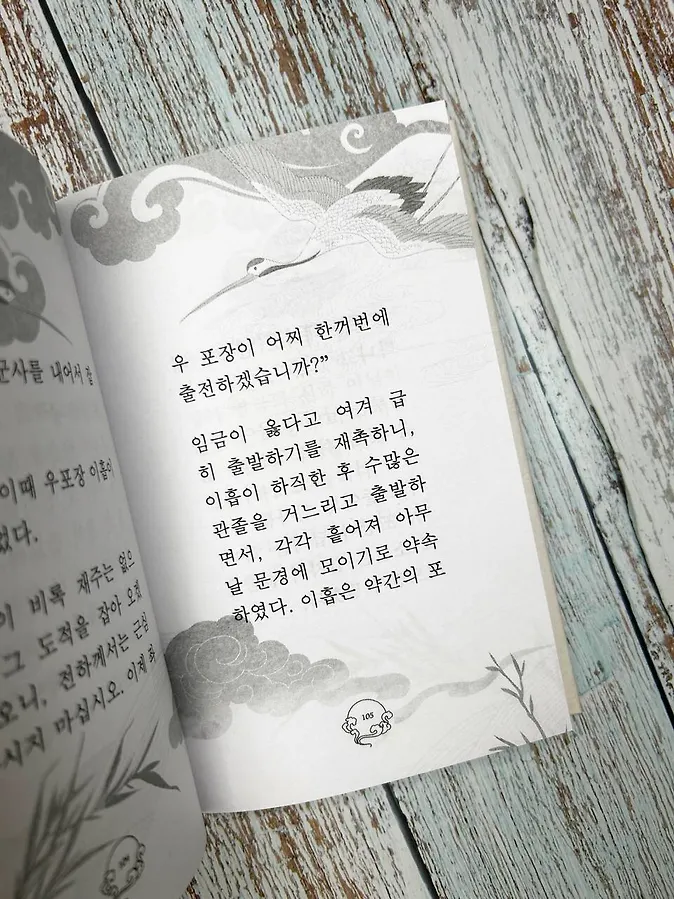 군사를 내어서 잡
이때 우포장 이흡이
었다.
이 비록 재주는 없으
그 도적을 잡아 오겠
오니, 전하께서는 근심
시지 마십시오. 이제 좌
106
우 포장이 어찌 한꺼번에
출전하겠습니까?”
임금이 옳다고 여겨 급
히 출발하기를 재촉하니,
이흡이 하직한 후 수많은
관졸을 거느리고 출발하
면서, 각각 흩어져 아무
날 문경에 모이기로 약속
하였다. 이흡은 약간의 포
105